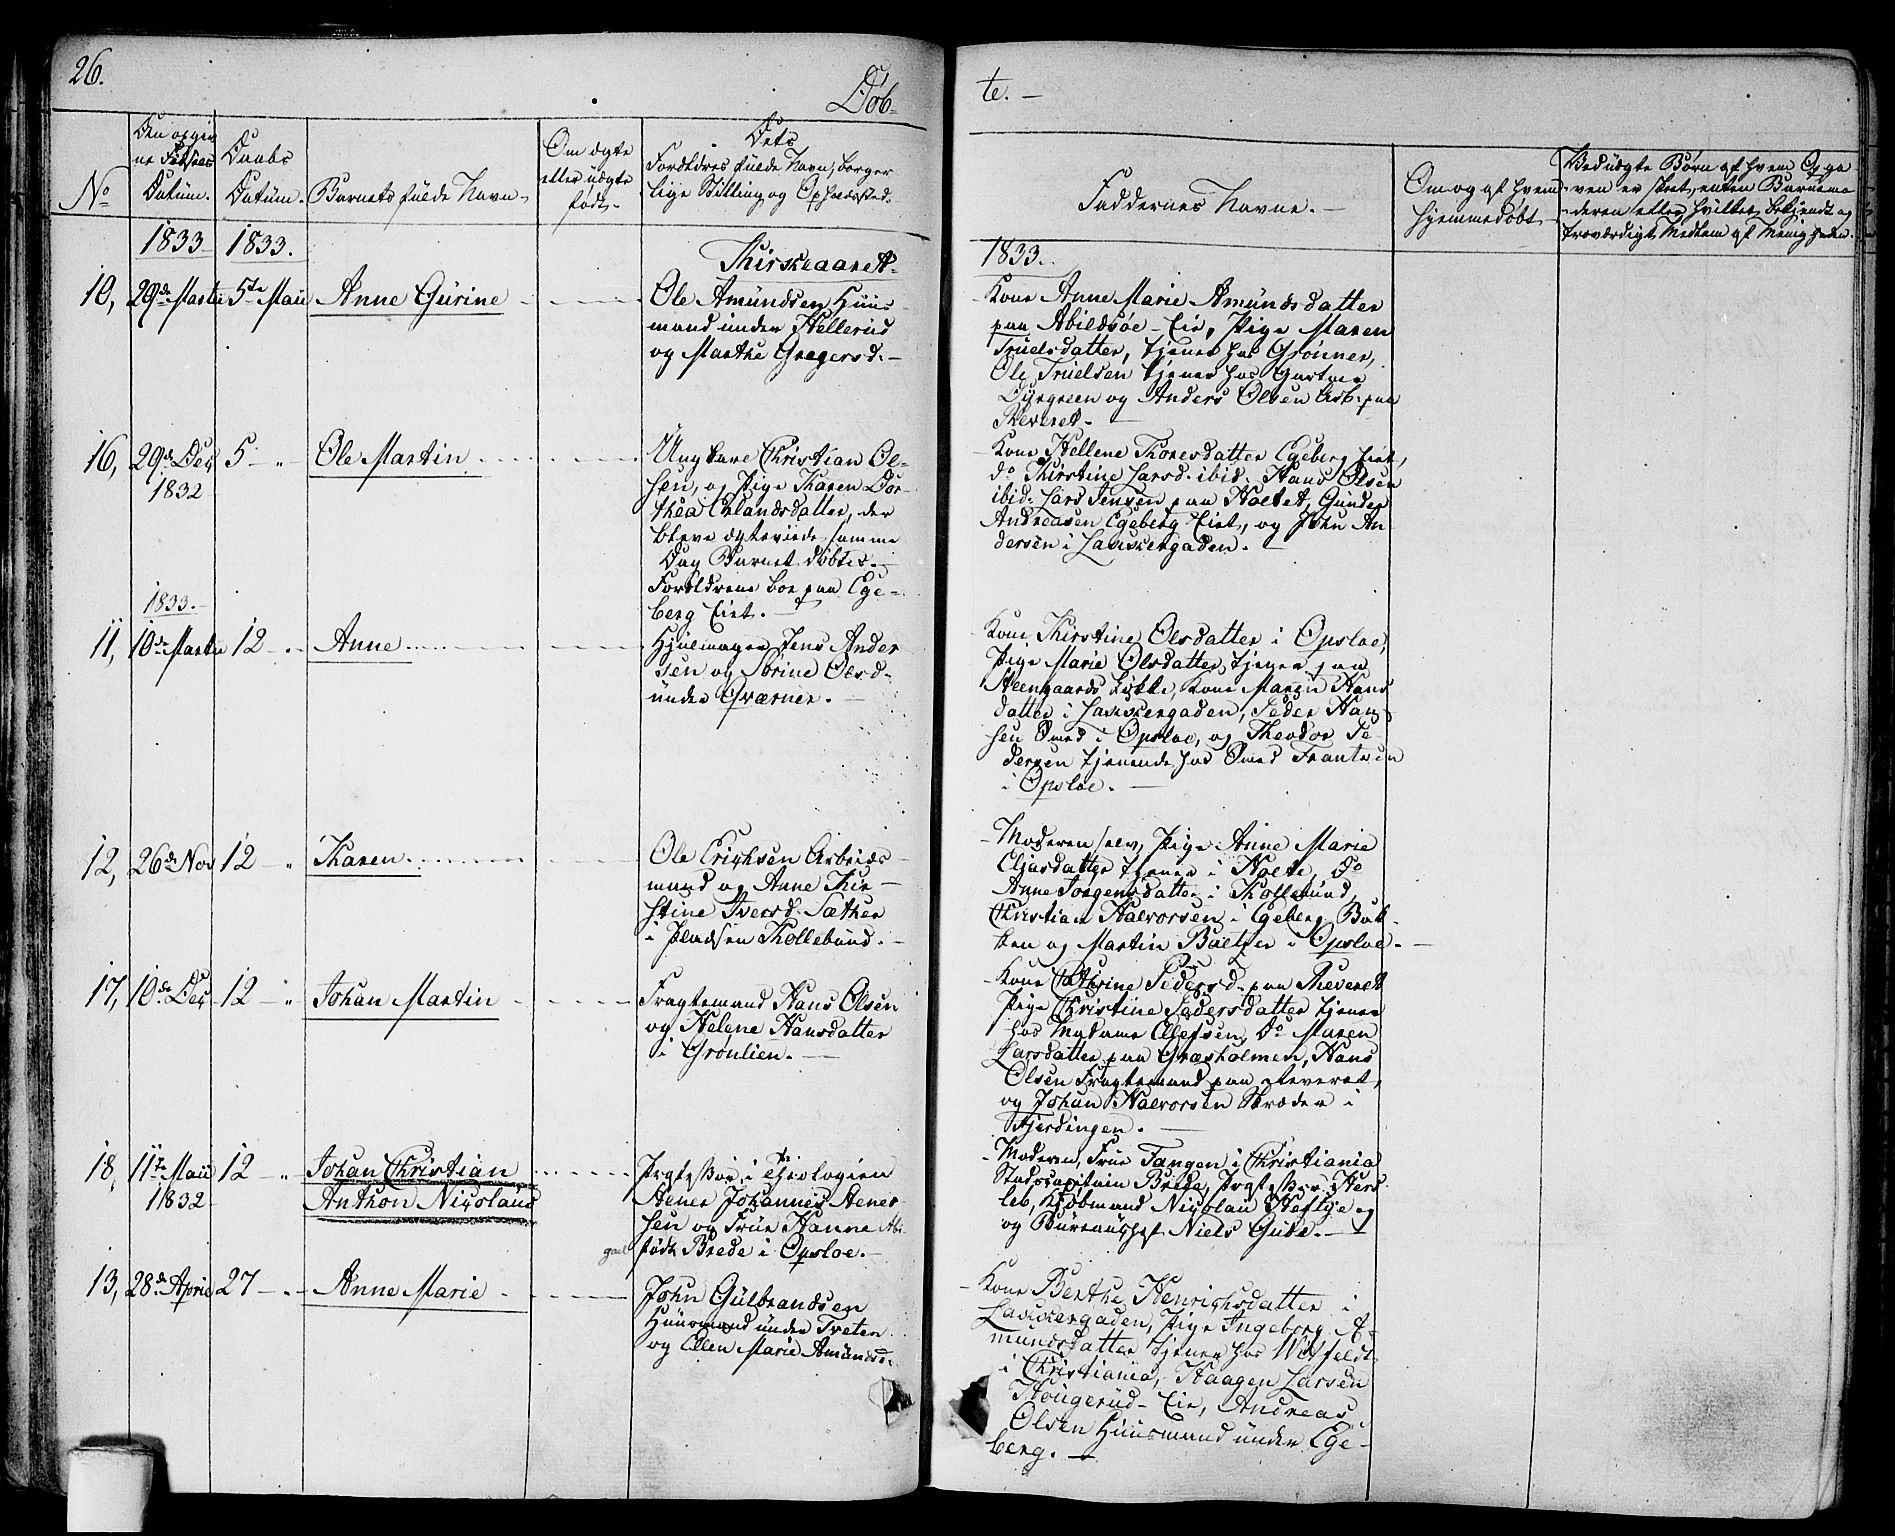 26.
Døb-
te. —
No
Den opgiv
ne Fødsels
Datum.
Daabs
Datum.
Barnets fulde Navn.
Om ægte
eller uægte
født.
Dets
Forældres fulde Navn, borger
lige Stilling og Opholdssted.
Faddernes Navne. —
Om og af hvem
hjemmedøbt
Ved uægte Børn af hvem Opga
ven er skeet, enten Barnemo
deren eller hvilket bekjendt og
troværdigt Medlem af Menigheden.
1833
1833.
1833.
10,
29de Martii
5te Maii
Anne Gurine
Ole Amundsen Huus
mand under Hellerud
og Marthe Gregersd. —
Kone Anne Marie Amundsdatter
paa Abildsøe-Eie, Pige Maren
Truelsdatter, tjener hos Grønner,
Ole Truelsen tjener hos Gartner
og Anders Olsen Arb. paa
16,
29de Dec
1832
5 — "
Ole Martin
Ungkarl Christian Ol-
sen, og Pige Karen Dor-
thea Erlandsdatter, der
bleve ægteviede samme
Dag Barnet døbtes. —
Forældrene boe paa Ege-
berg Eiet. —
Kone Hellene Thoresdatter Egeberg Eiet,
do Kirstine Larsd. ibid. Hans Olsen
ibid. Lars Jensen paa Gunder
Andreasen Egeberg Eiet, og John An
dersen i Lakkergaden. —
1833. —
11,
10de Martii
12 — "
Anne
Hjulmager Jens Ander
sen og Sørine Olsd.
under Qværner. —
Kone Kirstine Olsdatter i Opsloe,
Pige Marie Olsdatter tjener paa
Steengaards Løkke, Kone Maren Hans
datter i Lakkergaden, Peder Han
sen Smed i Opsloe, og Theodor Pe
dersen tjenende hos Smed Frantzen
i Opsloe. —
12,
26de Nov
12 — "
Karen
Ole Erichsen Arbeids
mand og Anne Kir-
stine Iversd. Sæther
i Pladsen Kollebund. —
Moderen selv, Pige Anne Marie
Eliasdatter tjener i do
Anne Jørgensdatter i Kollebund,
Christian Halvorsen i Egeberg Bak-
ken og Martin Baltzer i Opsloe. —
17,
10de Dec
12 — "
Johan Martin
Fragtemand Hans Olsen
og Helene Hansdatter
i Grønlien. —
Kone Cathrine Pedersd. paa
Pige Christine Pedersdatter tjener
hos Madame Ellefsen, Do Maren
Larsdatter paa Græsholmen, Hans
Olsen Fragtemand paa
og Johan Halvorsen Skræder i
Fjerdingen. —
18,
11te Maii
1832
12 — "
Johan Christian
Anthon Nicolaus
i Theologien
Aenes Johannes Aenes
sen og Frue Hanne Abi
gael
født Brede i Opsloe. —
Moderen, Frue Fangen i Christiania
Stadscapitain Brede, Hers
leb, Kjøbmand Nicolau Heftye og
og Bureauchef Niels Gude. —
13,
28de April
27 — "
Anne Marie
John Gulbrandsen
Huusmand under Tveten
og Ellen Marie Amundsd.
Kone Berthe Henrichsdatter i
Lakkergaden, Pige Ingeborg A-
mundsdatter tjener hos
i Christiania, Haagen Larsen
Hougerud-Eie, Andreas
Olsen Huusmand under Ege-
berg. —